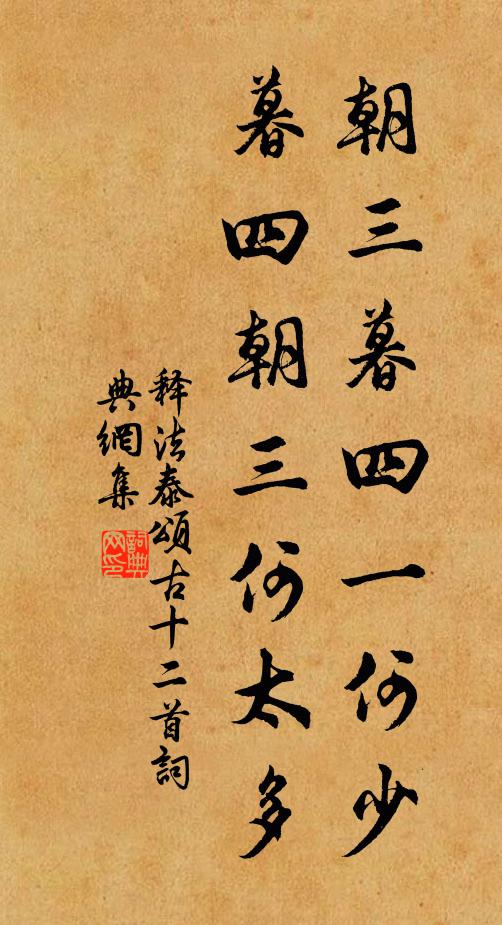 朝三暮四一何少
暮四朝三何太多
释法泰頌古十二首詞
典網集
詞典網印